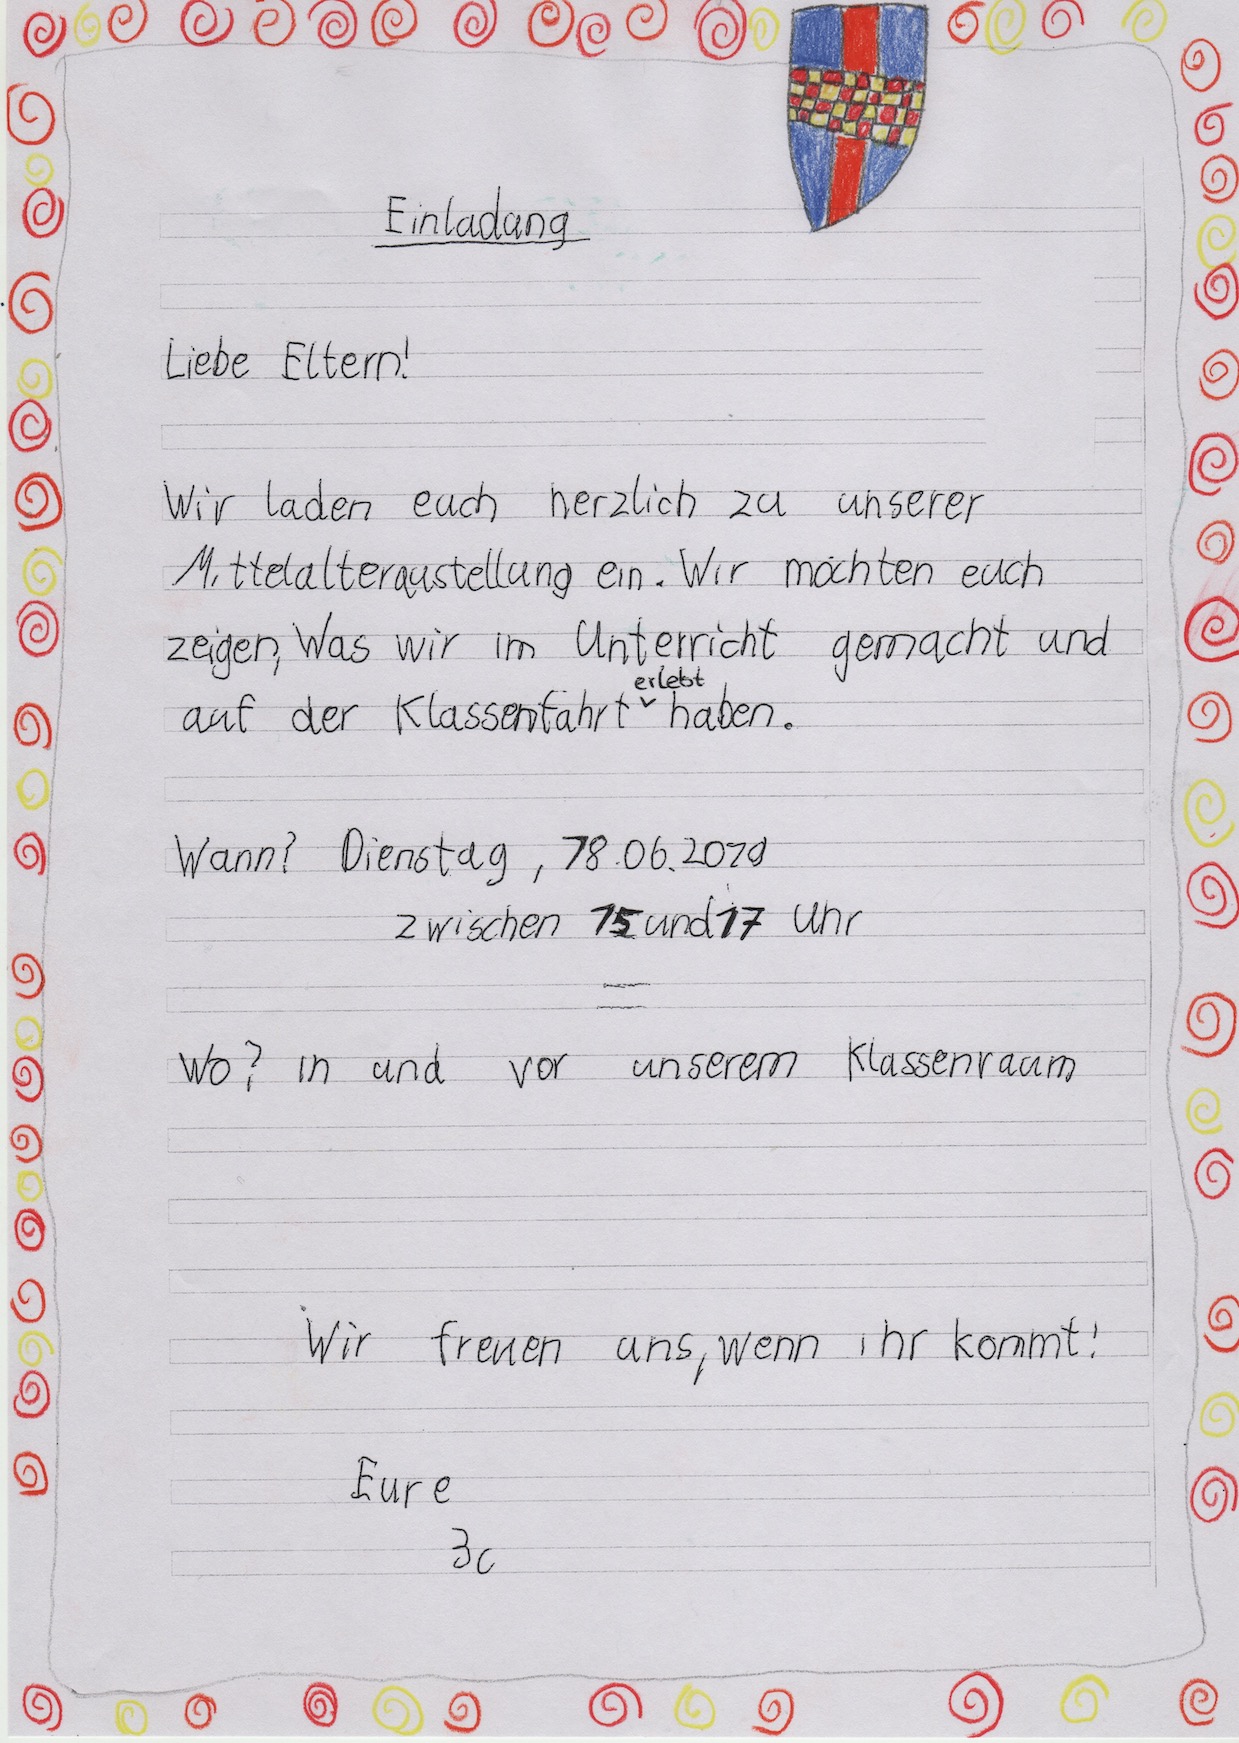 Einladung
Liebe Eltern!
Wir laden euch herzlich zu unserer
Mittelalteraustellung ein. Wir möchten euch
zeigen, Was wir im Unterricht gemacht und
auf der Klassenfahrt erlebt haben.
Wann? Dienstag, 18.06.2019
zwischen 15 und 17 Uhr
Wo? in und vor unserem Klassenraum
Wir freuen uns, wenn ihr kommt!
Eure
3c